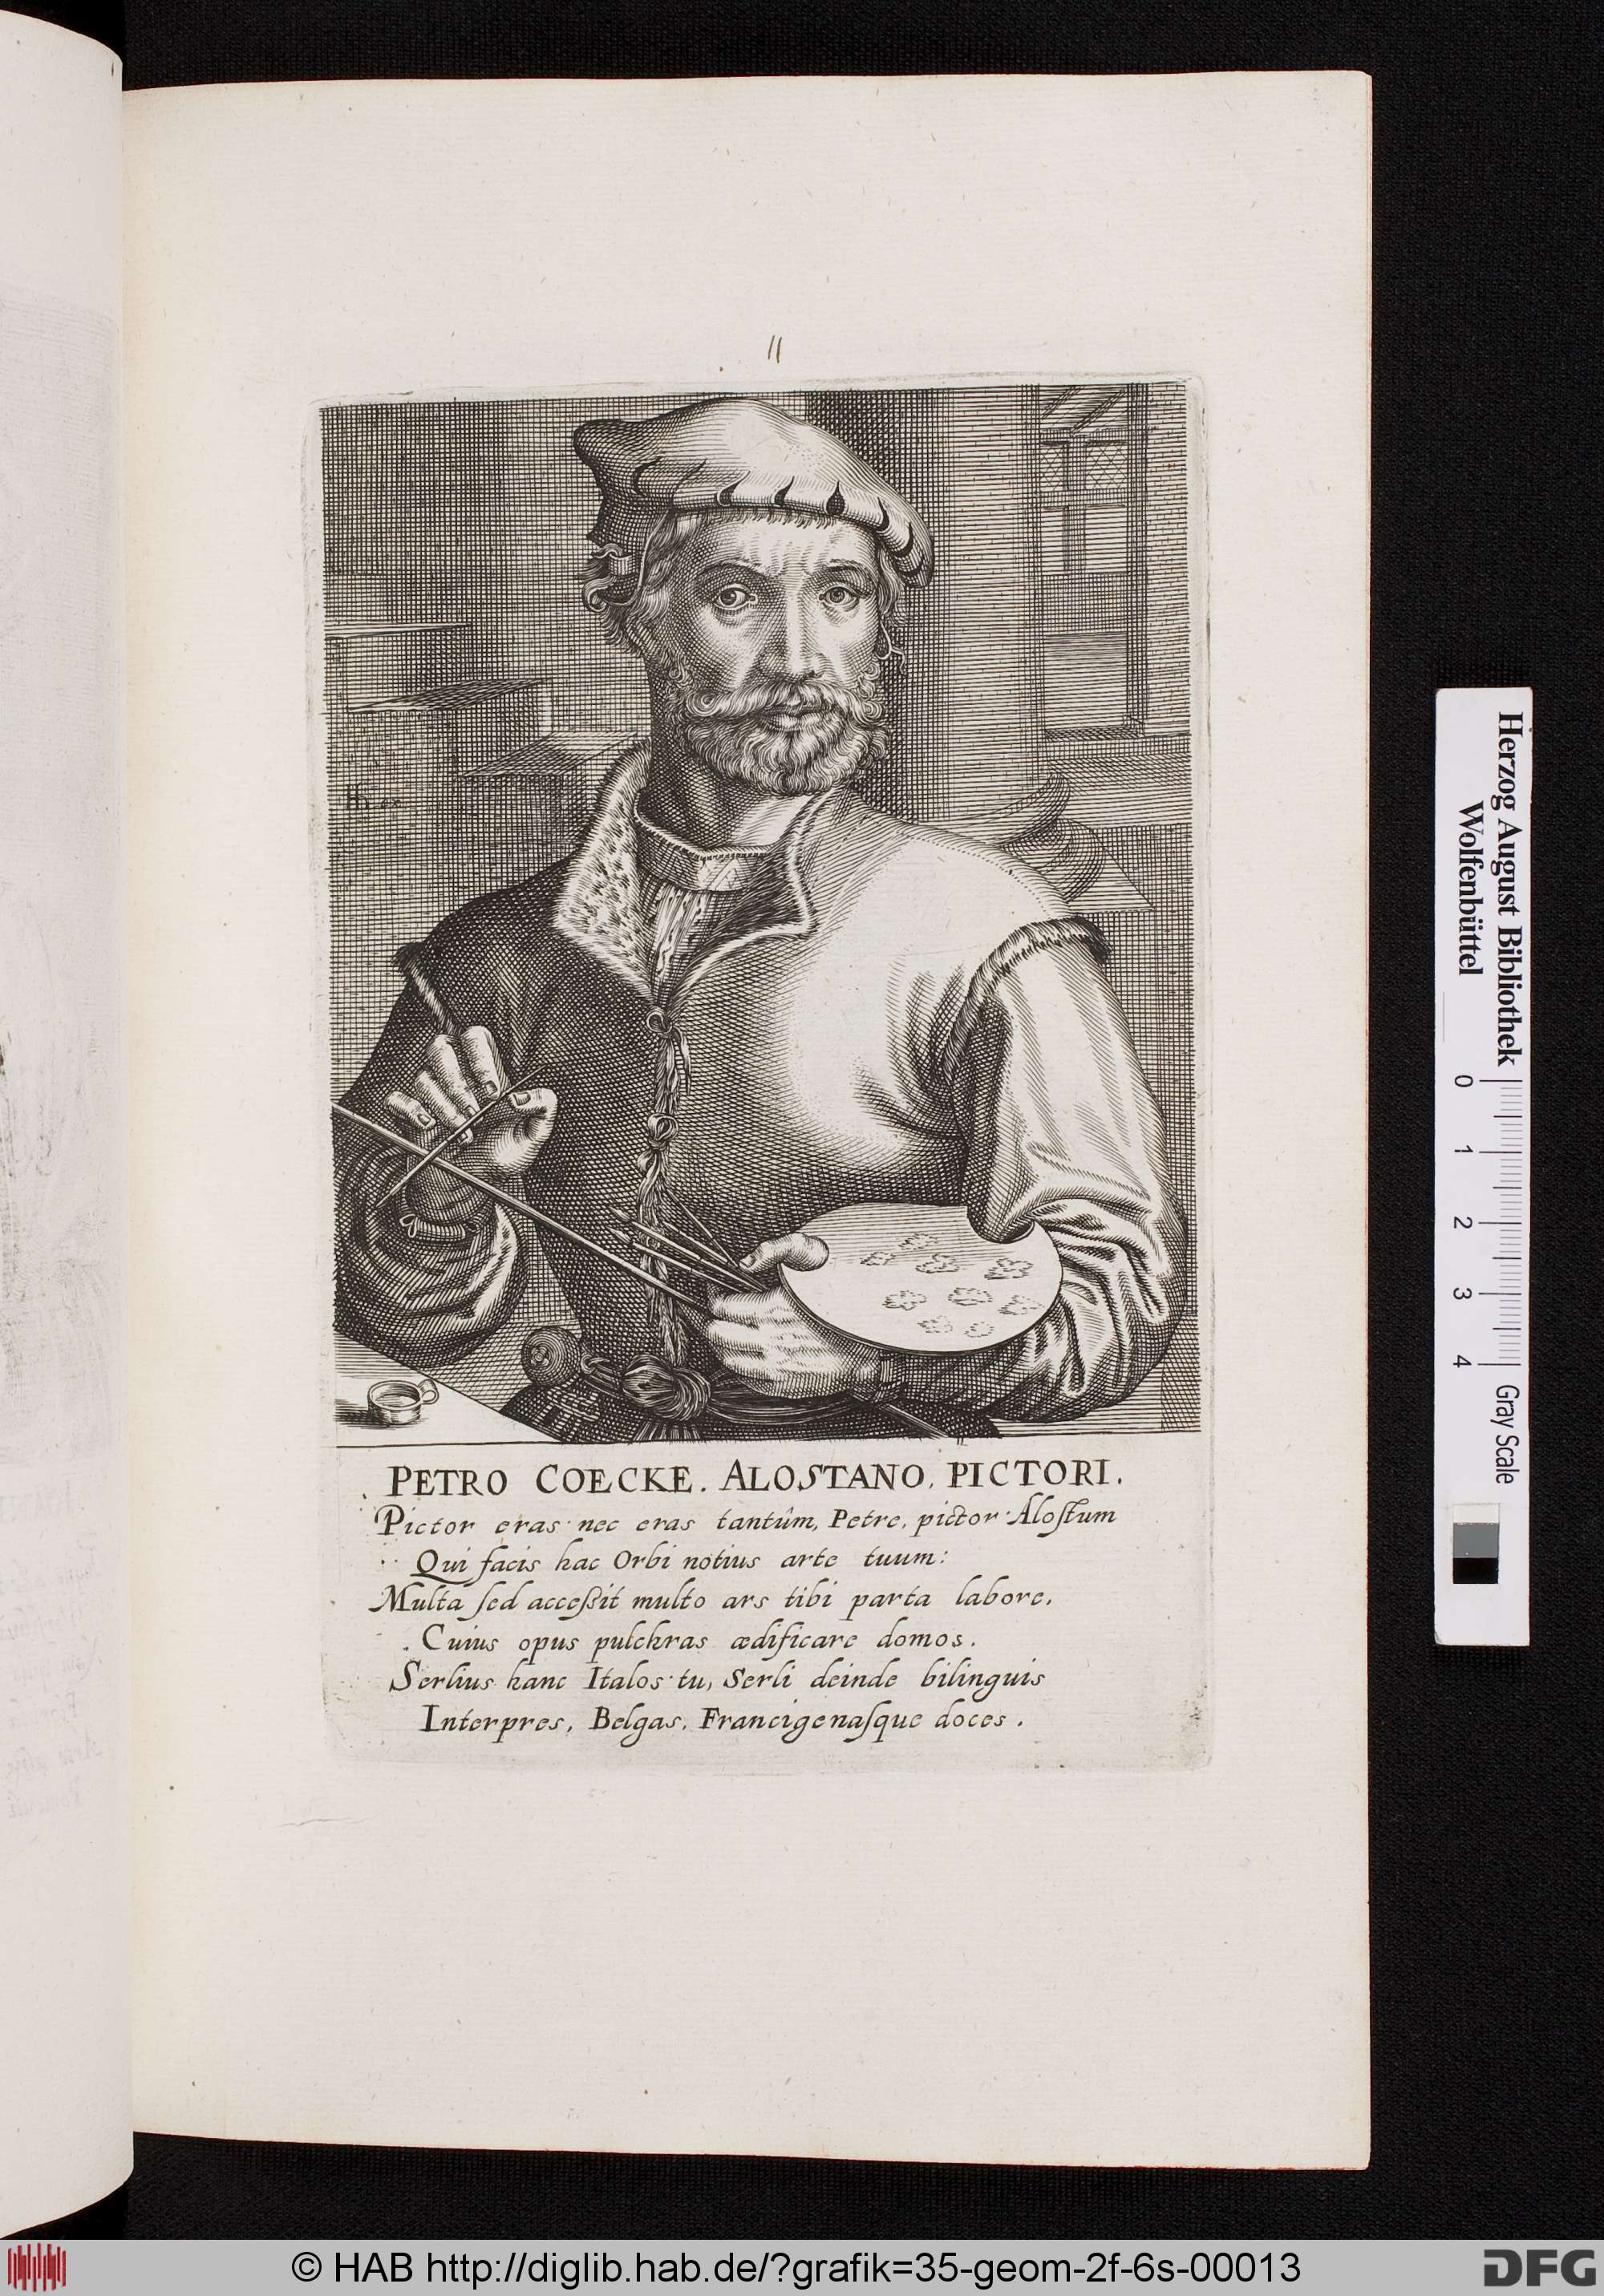 11
Hh. ex.
PETRO COECKE. ALOSTANO. PICTORI.
Pictor eras nec eras tantûm, Petre, pictor Aloſtum
Qui facis hac Orbi notius arte tuum:
Multa ſed acceßit multo ars tibi parta labore,
Cuius opus pulchras ædificare domos.
Serlius hanc Italos tu, Serli deinde bilinguis
Interpres, Belgas, Francigenaſque doces.
Herzog August Bibliothek
Wolfenbüttel
0 1 2 3 4
Gray Scale
© HAB http://diglib.hab.de/?grafik=35-geom-2f-6s-00013
DFG